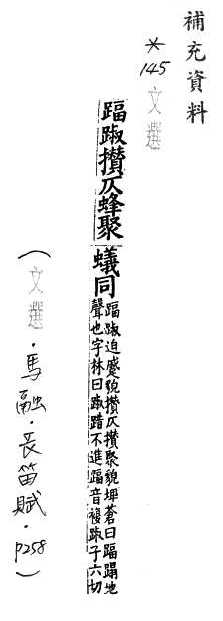 補充資料
*145 文選
踾踧攅仄蜂聚蟻同
踾踧迫蹙貌攅仄攅聚貌埤蒼曰踾蹋地
聲也字林曰踧踖不進踾音複踧子六切
(文選·馬融·長笛賦·P258)